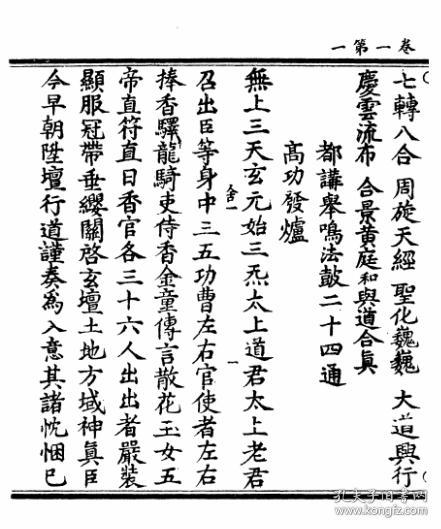 卷一第一
七轉八合　周旋天經　聖化巍巍　大道興行
慶雲流布　合景黃庭　和與道合眞
都講舉鳴法鼓二十四通
高功發爐
無上三天玄元始三炁太上道君太上老君
召出臣等身中三五功曹左右官使者左右
捧香驛龍騎吏侍香金童傳言散花玉女五
帝直符直日香官各三十六人出出者嚴裝
顯服冠帶垂纓關啓玄壇土地方域神眞臣
今早朝陞壇行道謹奏爲入意其諸忱悃已
孔夫子旧书网